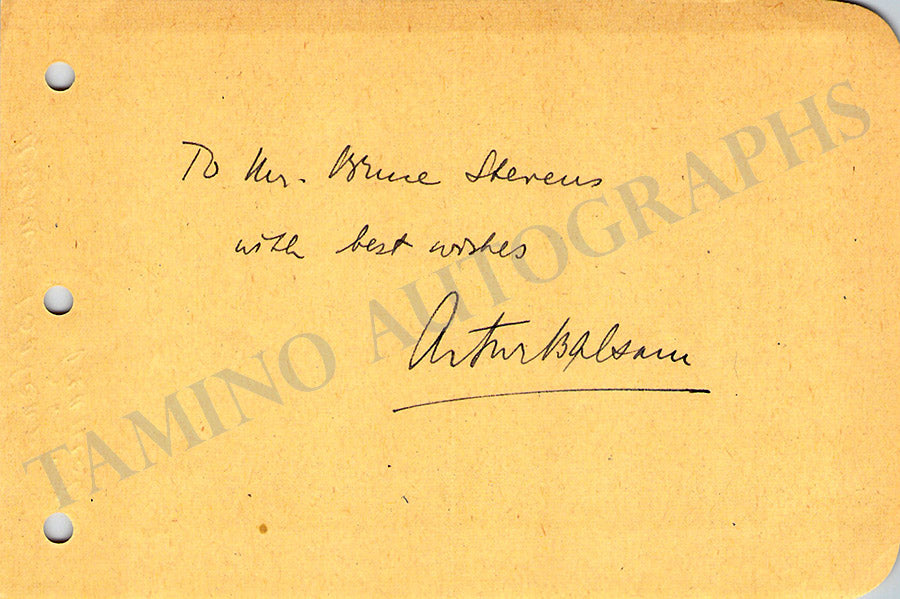 To Mr. Bruce Stevens
with best wishes
Artur Balsam
TAMINO AUTOGRAPHS